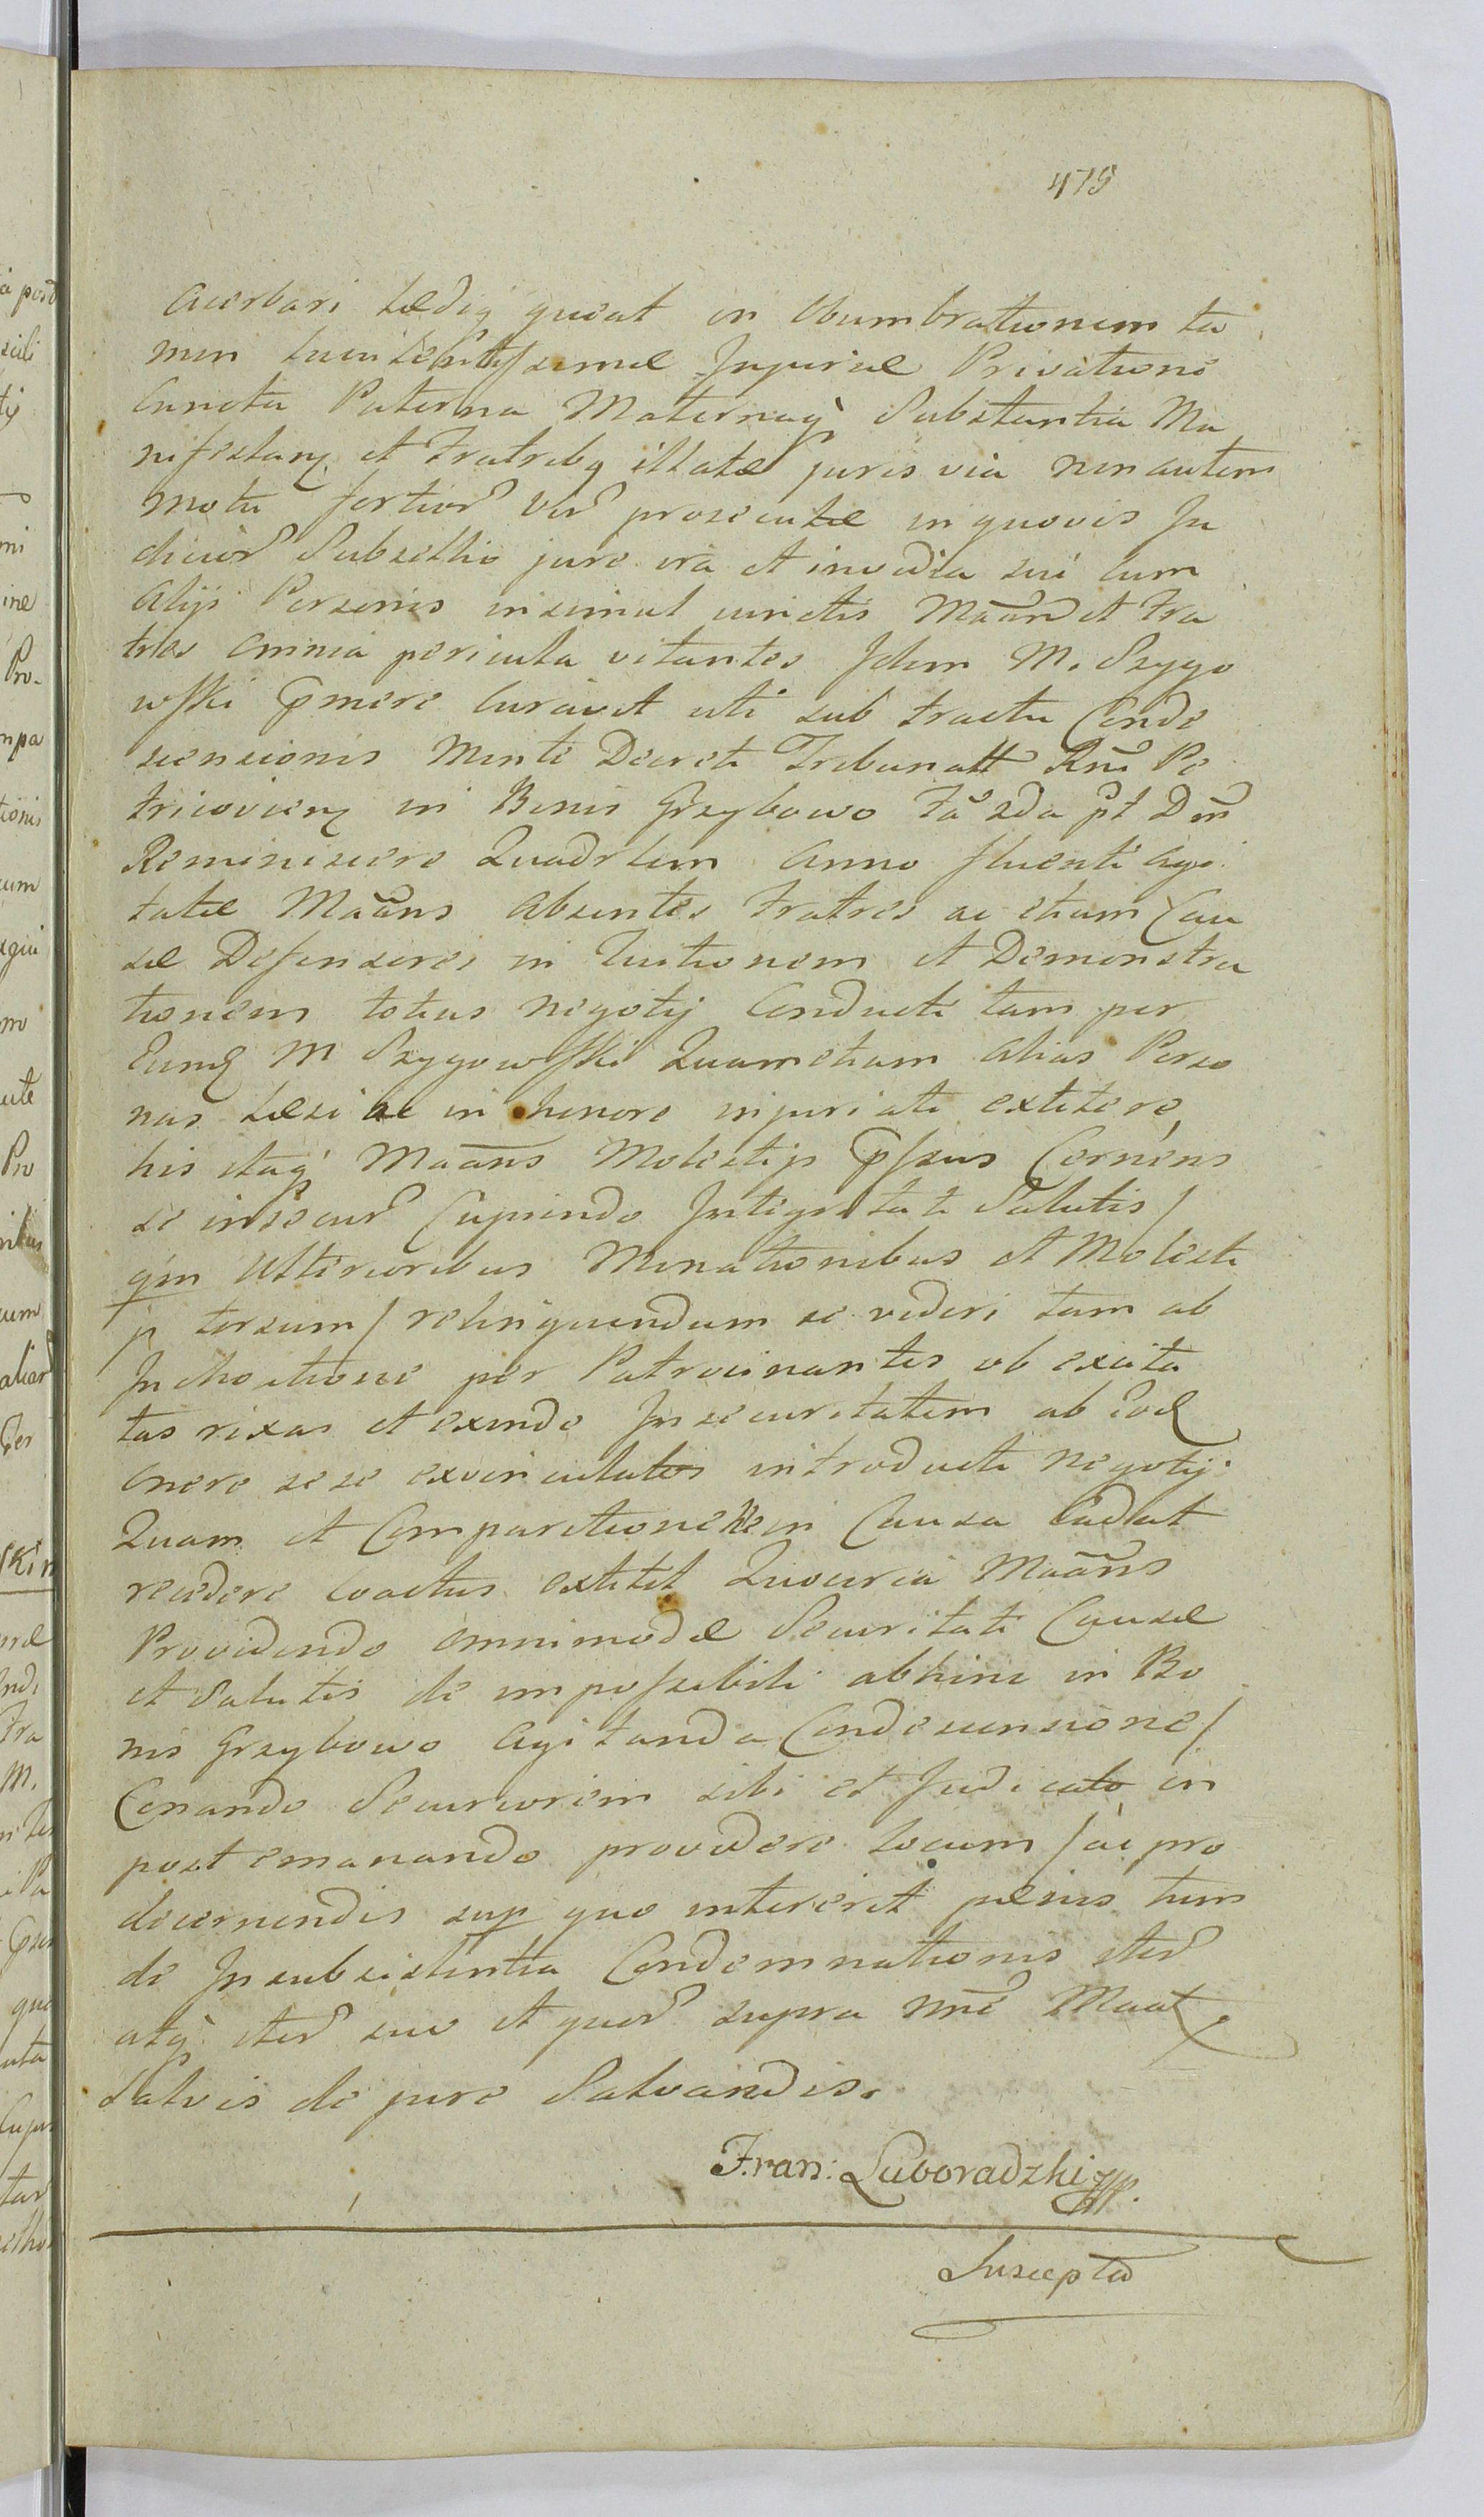 475
Acerbari Lædiq queat in Obumbrationem ta
men luculentissimæ Injuriæ Privatione
Cuncta Paterna Maternaq Substantia Ma
nifestanq et Fratribq illatæ juris via non autem
motu fortior Vir prosecutæ in quovis Ju
dicior Subsellio jure ira et invidia sui cum
Alijs Personis insimul iunctis Maan et Fra
tres Omnia pericula vitantes Idem M. Szygo
wski Opmere Curavit uti sub tractu Conde
scensionis Mente Decreti Tribunatt Rni Pe
tricovienq in Bonis Grzybowo Fa 2da pt Dm
Reminiscere Quadrlem Anno fluenti Agi
tatæ Maans Absentes Fratres ac etiam Cau
sæ Defensores in Tuitionem et Demonstra
tionem totius negotij Conducti tam per
Eund M Szygowski Quam etiam Alias Perso
nas Læsi ac in honore injuriati extitere,
his itaq Maans Molestijs Oppssus Cernens
se insecur Cupiendo Integritati Salutis /
qm Ulterioribus Minationibus et Molesti
js torsum / relinquendum se videri tam ab
Inchoatione per Patrocinantes ob excita
tas rixas et exinde Insecuritatem ab eod
onere sese exvinculatos introducti negotij
Quam et Comparitione in Causa eadat
recedere coactus extitit Quocirca Maans
Providendo omnimodæ Securitati Causæ
et Salutis de impossibili abhinc in Bo
nis Grzybowo Agitanda Condescensione /
Conando Securiorem sibi et Judicato in
post emanando providere locum / ac pro
decernendis sup quo intererit pænis tum
de Insubsistentia Condemnationis iter
atq iter suo et quor supra nne Maat
Salvis de jure Salvandis.
Fran: Luboradzki mp.
Suscepta